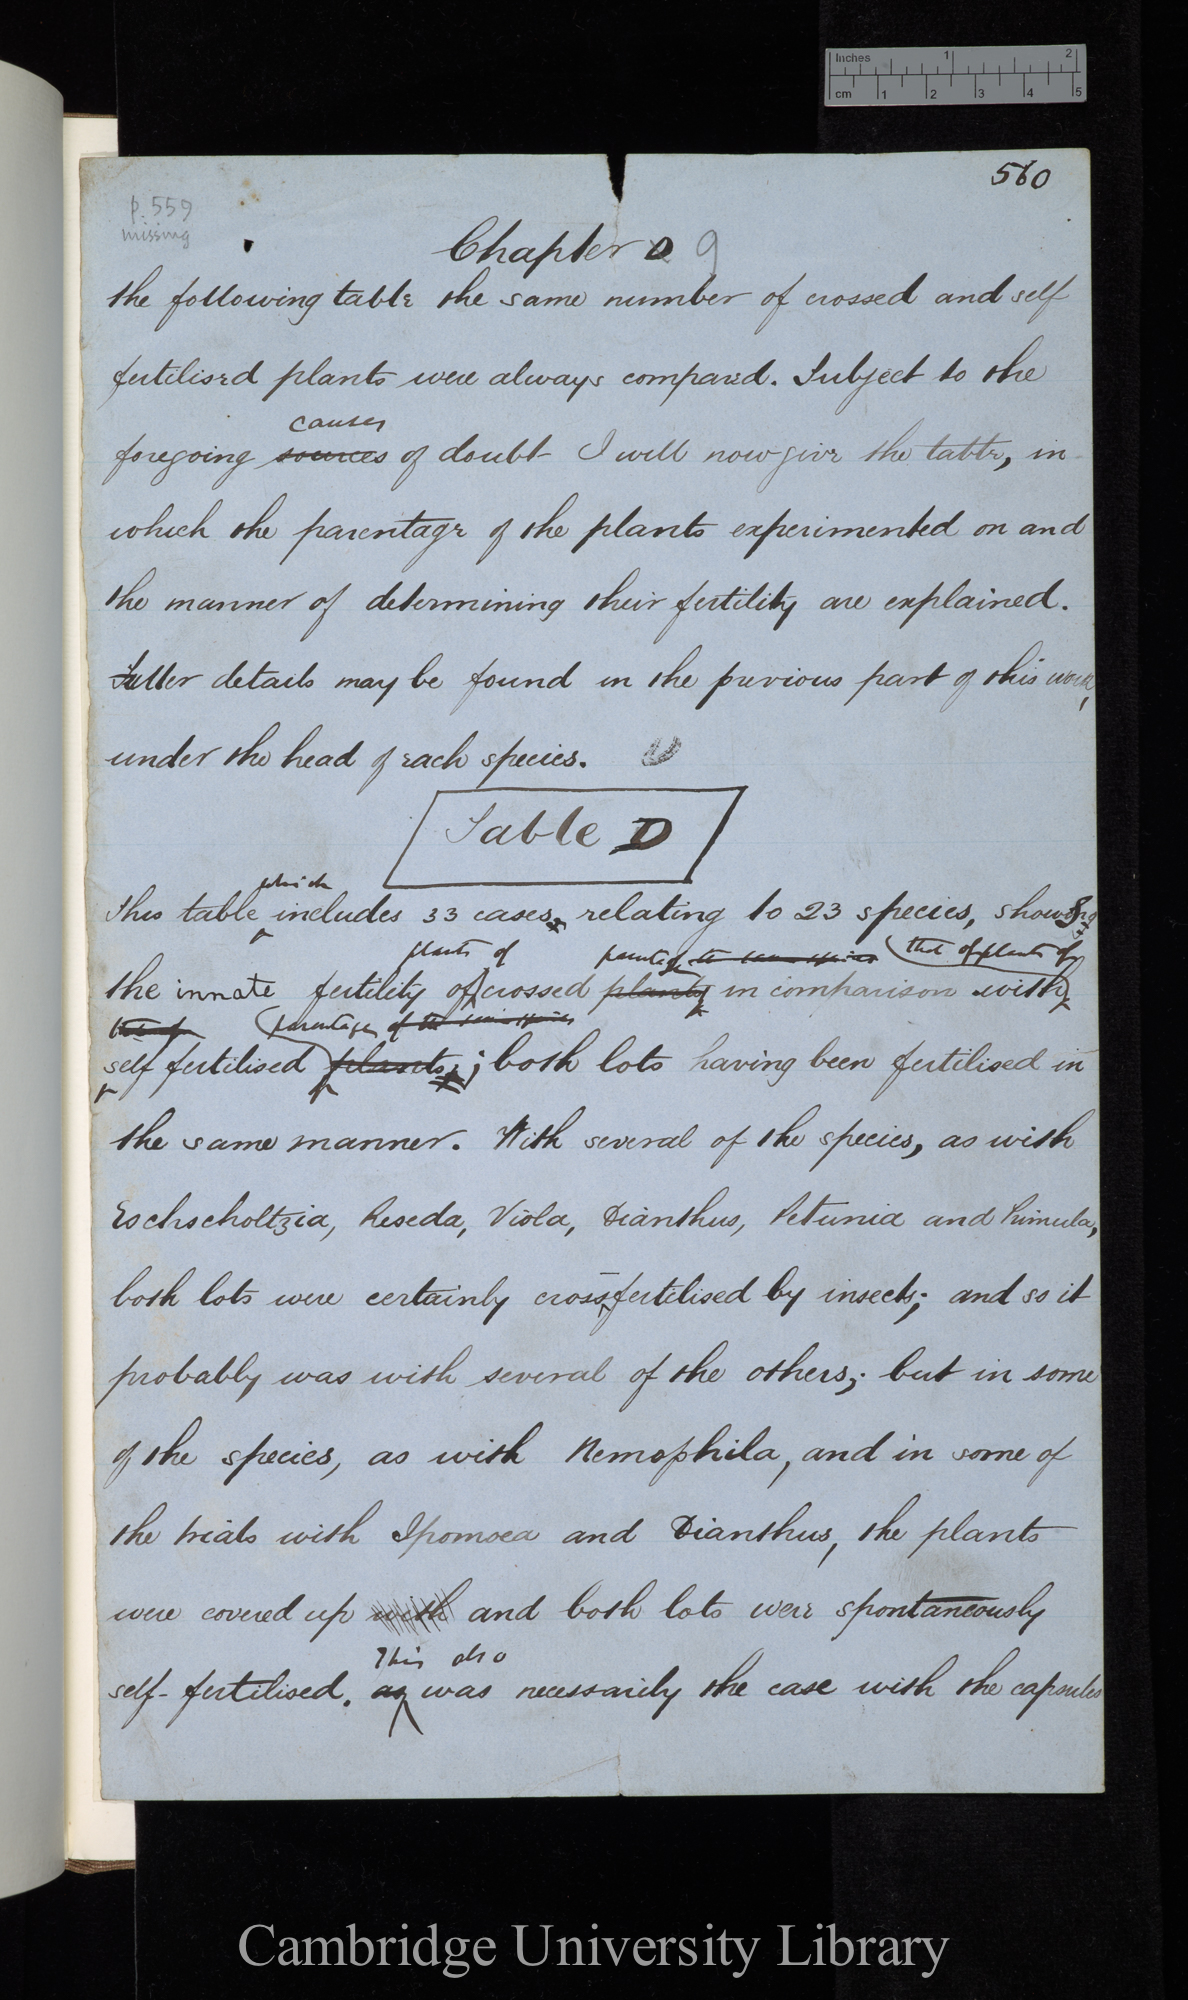 Inches 1 2
cm 1 2 3 4 5
560
p. 559
missing
Chapter D 9
the following table the same number of crossed and self
fertilised plants were always compared. Subject to the
causes
foregoing sources of doubt I will now give the table, in
which the parentage of the plants experimented on and
the manner of determining their fertility are explained.
Fuller details may be found in the previous part of this work,
under the head of each species.
Table D
which
This table includes 33 cases, relating to 23 species, showing
plants of parentage the same species that of plants of
the innate fertility of crossed plants in comparison with
that of parentage of the same species
self fertilised plants; both lots having been fertilised in
the same manner. With several of the species, as with
Eschscholtzia, Reseda, Viola, Dianthus, Petunia and Primula,
both lots were certainly cross-fertilised by insects; and so it
probably was with several of the others; but in some
of the species, as with Nemophila, and in some of
the trials with Ipomoea and Dianthus, the plants
were covered up and both lots were spontaneously
This also
self-fertilised. as was necessarily the case with the capsules
Cambridge University Library